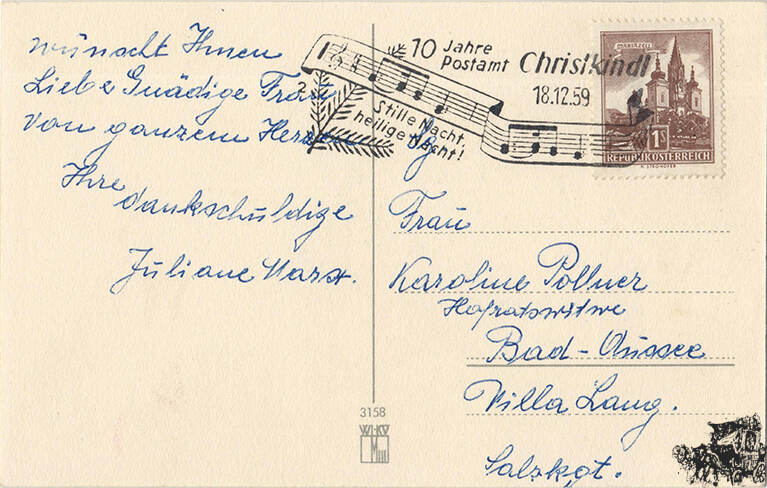 wünscht Ihnen
Liebe Gnädige Frau
von ganzem Herzen
Ihre
dankschuldige
Juliane Marx.
10 Jahre
Postamt Christkindl
18.12.59
2
Stille Nacht,
heilige Nacht!
MARIAZELL
1S
REPUBLIK ÖSTERREICH
Frau
Karoline Pollner
Hofratswitwe
Bad-Aussee
Villa Lang.
Salzkgt.
3158
WI-KV